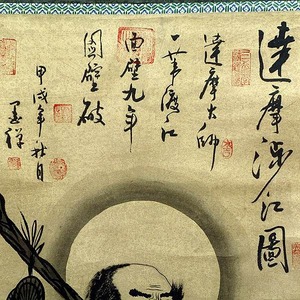 達摩涉江圖
達摩大師
一葦渡江
面壁九年
圓壁破
甲戌年秋月